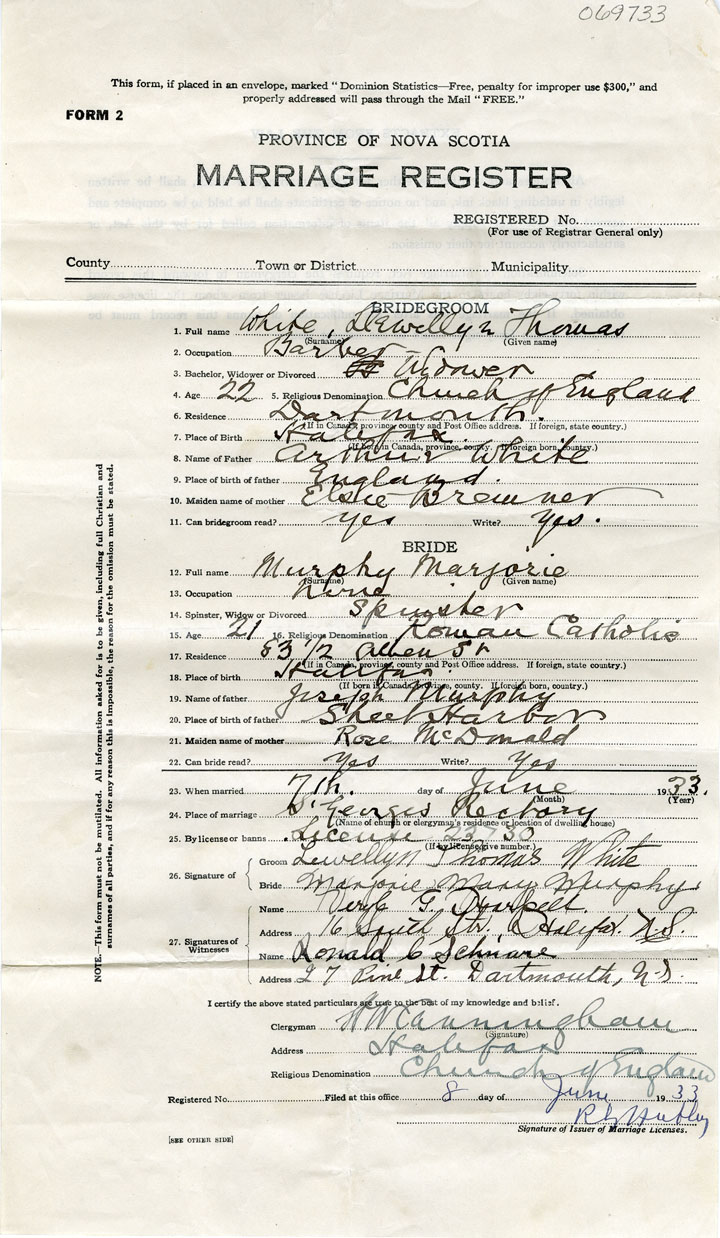 069733
This form, if placed in an envelope, marked "Dominion Statistics—Free, penalty for improper use $300," and
properly addressed will pass through the Mail "FREE."
FORM 2
PROVINCE OF NOVA SCOTIA
MARRIAGE REGISTER
REGISTERED No.
(For use of Registrar General only)
County Town or District Municipality
BRIDEGROOM
1. Full name White, Llewellyn Thomas
(Surname) (Given name)
2. Occupation Barber
3. Bachelor, Widower or Divorced Widower
4. Age 22 5. Religious Denomination Church of England
6. Residence Dartmouth.
(If in Canada, province, county and Post Office address. If foreign, state country.)
7. Place of Birth Halifax
(If born in Canada, province, county. If foreign born, country.)
8. Name of Father Arthur White
9. Place of birth of father England.
10. Maiden name of mother Elsie Bremner
11. Can bridegroom read? yes Write? yes.
BRIDE
12. Full name Murphy Marjorie
(Surname) (Given name)
13. Occupation
14. Spinster, Widow or Divorced Spinster
15. Age 21 16. Religious Denomination Roman Catholic
17. Residence 63 1/2 Allen St
(If in Canada, province, county and Post Office address. If foreign, state country.)
18. Place of birth Halifax
(If born in Canada, province, county. If foreign born, country.)
19. Name of father Joseph Murphy
20. Place of birth of father Sheet Harbor
21. Maiden name of mother Rose McDonald
22. Can bride read? Yes Write? Yes
23. When married 7th. day of June 1933.
(Month) (Year)
24. Place of marriage St Georges Rectory
(Name of church or clergyman's residence or location of dwelling house)
25. By license or banns License 23730
(If by license, give number.)
26. Signature of
Groom Lewellyn Thomas White
Bride Marjorie Mary Murphy
27. Signatures of Witnesses
Name G.
Address 16 South Str. Halifax. N.S.
Name Ronald C Schnare
Address 27 Pine St. Dartmouth, N.S.
I certify the above stated particulars are true to the best of my knowledge and belief.
Clergyman Cunningham
(Signature)
Address Halifax
Religious Denomination Church of England
Registered No. Filed at this office 8 day of June 1933
Signature of Issuer of Marriage Licenses.
[SEE OTHER SIDE]
NOTE.—This form must not be mutilated. All information asked for is to be given, including full Christian and
surnames of all parties, and if for any reason this is impossible, the reason for the omission must be stated.